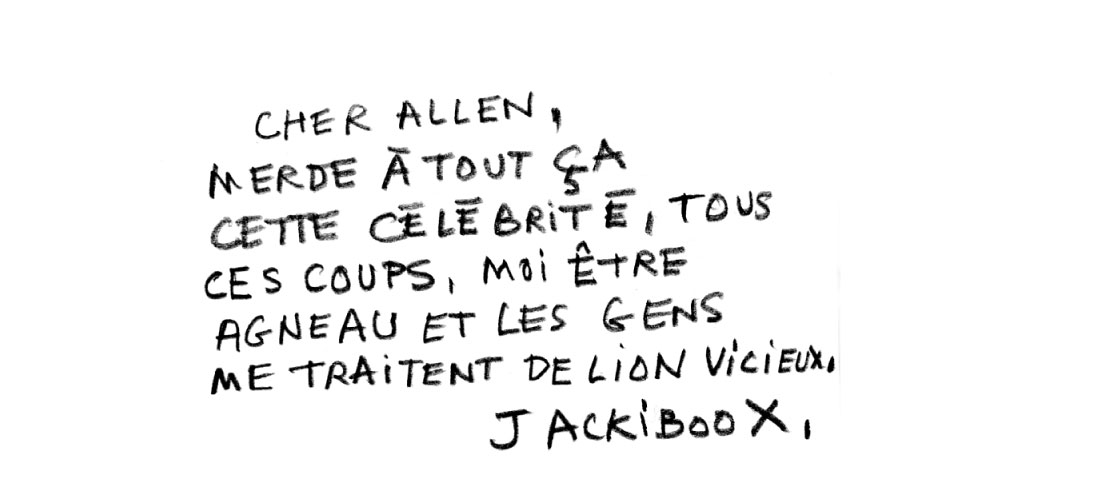 CHER ALLEN,
MERDE À TOUT ÇA
CETTE CÉLÉBRITÉ, TOUS
CES COUPS, MOI ÊTRE
AGNEAU ET LES GENS
ME TRAITENT DE LION VICIEUX.
JACKIBOO X,